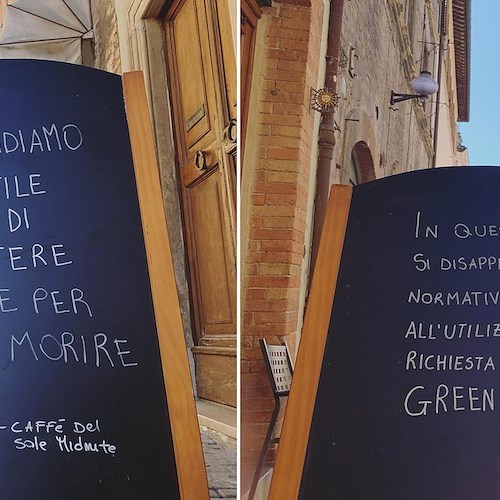 DIAMO
TILE
DI
TERE
E PER
MORIRE
-CAFFé Del
Sole Midnute
IN QUE
SI DISAPP
NORMATIV
ALL'UTILIZ
RICHIESTA
GREEN